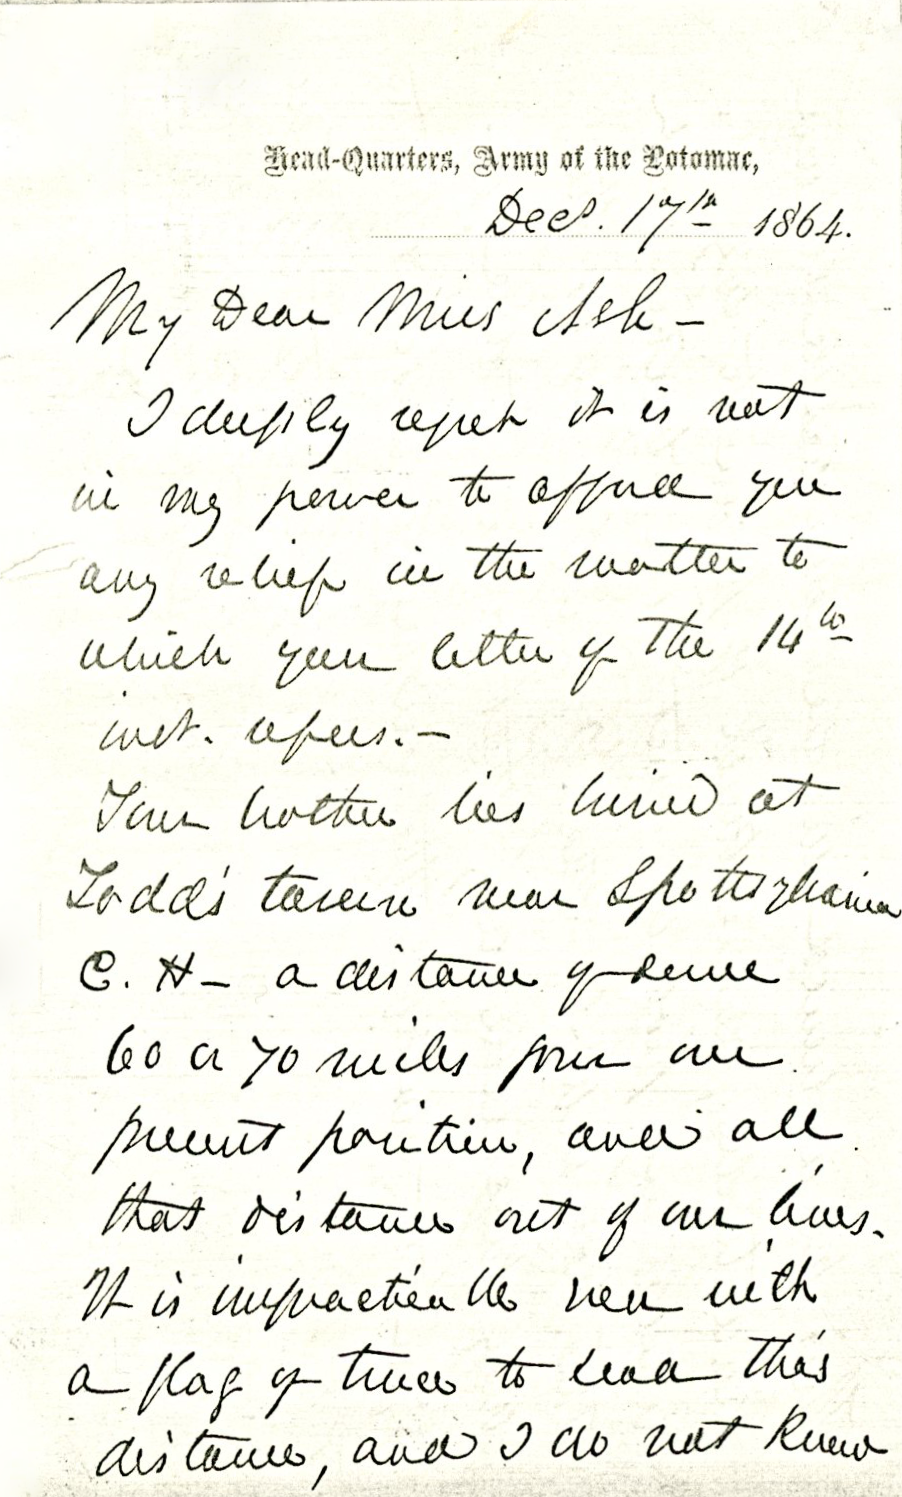 Head-Quarters, Army of the Potomac,
Decr. 17th 1864.
My Dear Miss Ash –
I deeply regret it is not
in my power to afford you
any relief in the matter to
which your letter of the 14th
inst. refers. –
Your brother lies buried at
Todd's tavern near Spottsylvania
C. H – a distance of some
60 or 70 miles from our
present position, and all
that distance out of our lines.
It is impracticable even with
a flag of truce to send this
distance, and I do not know